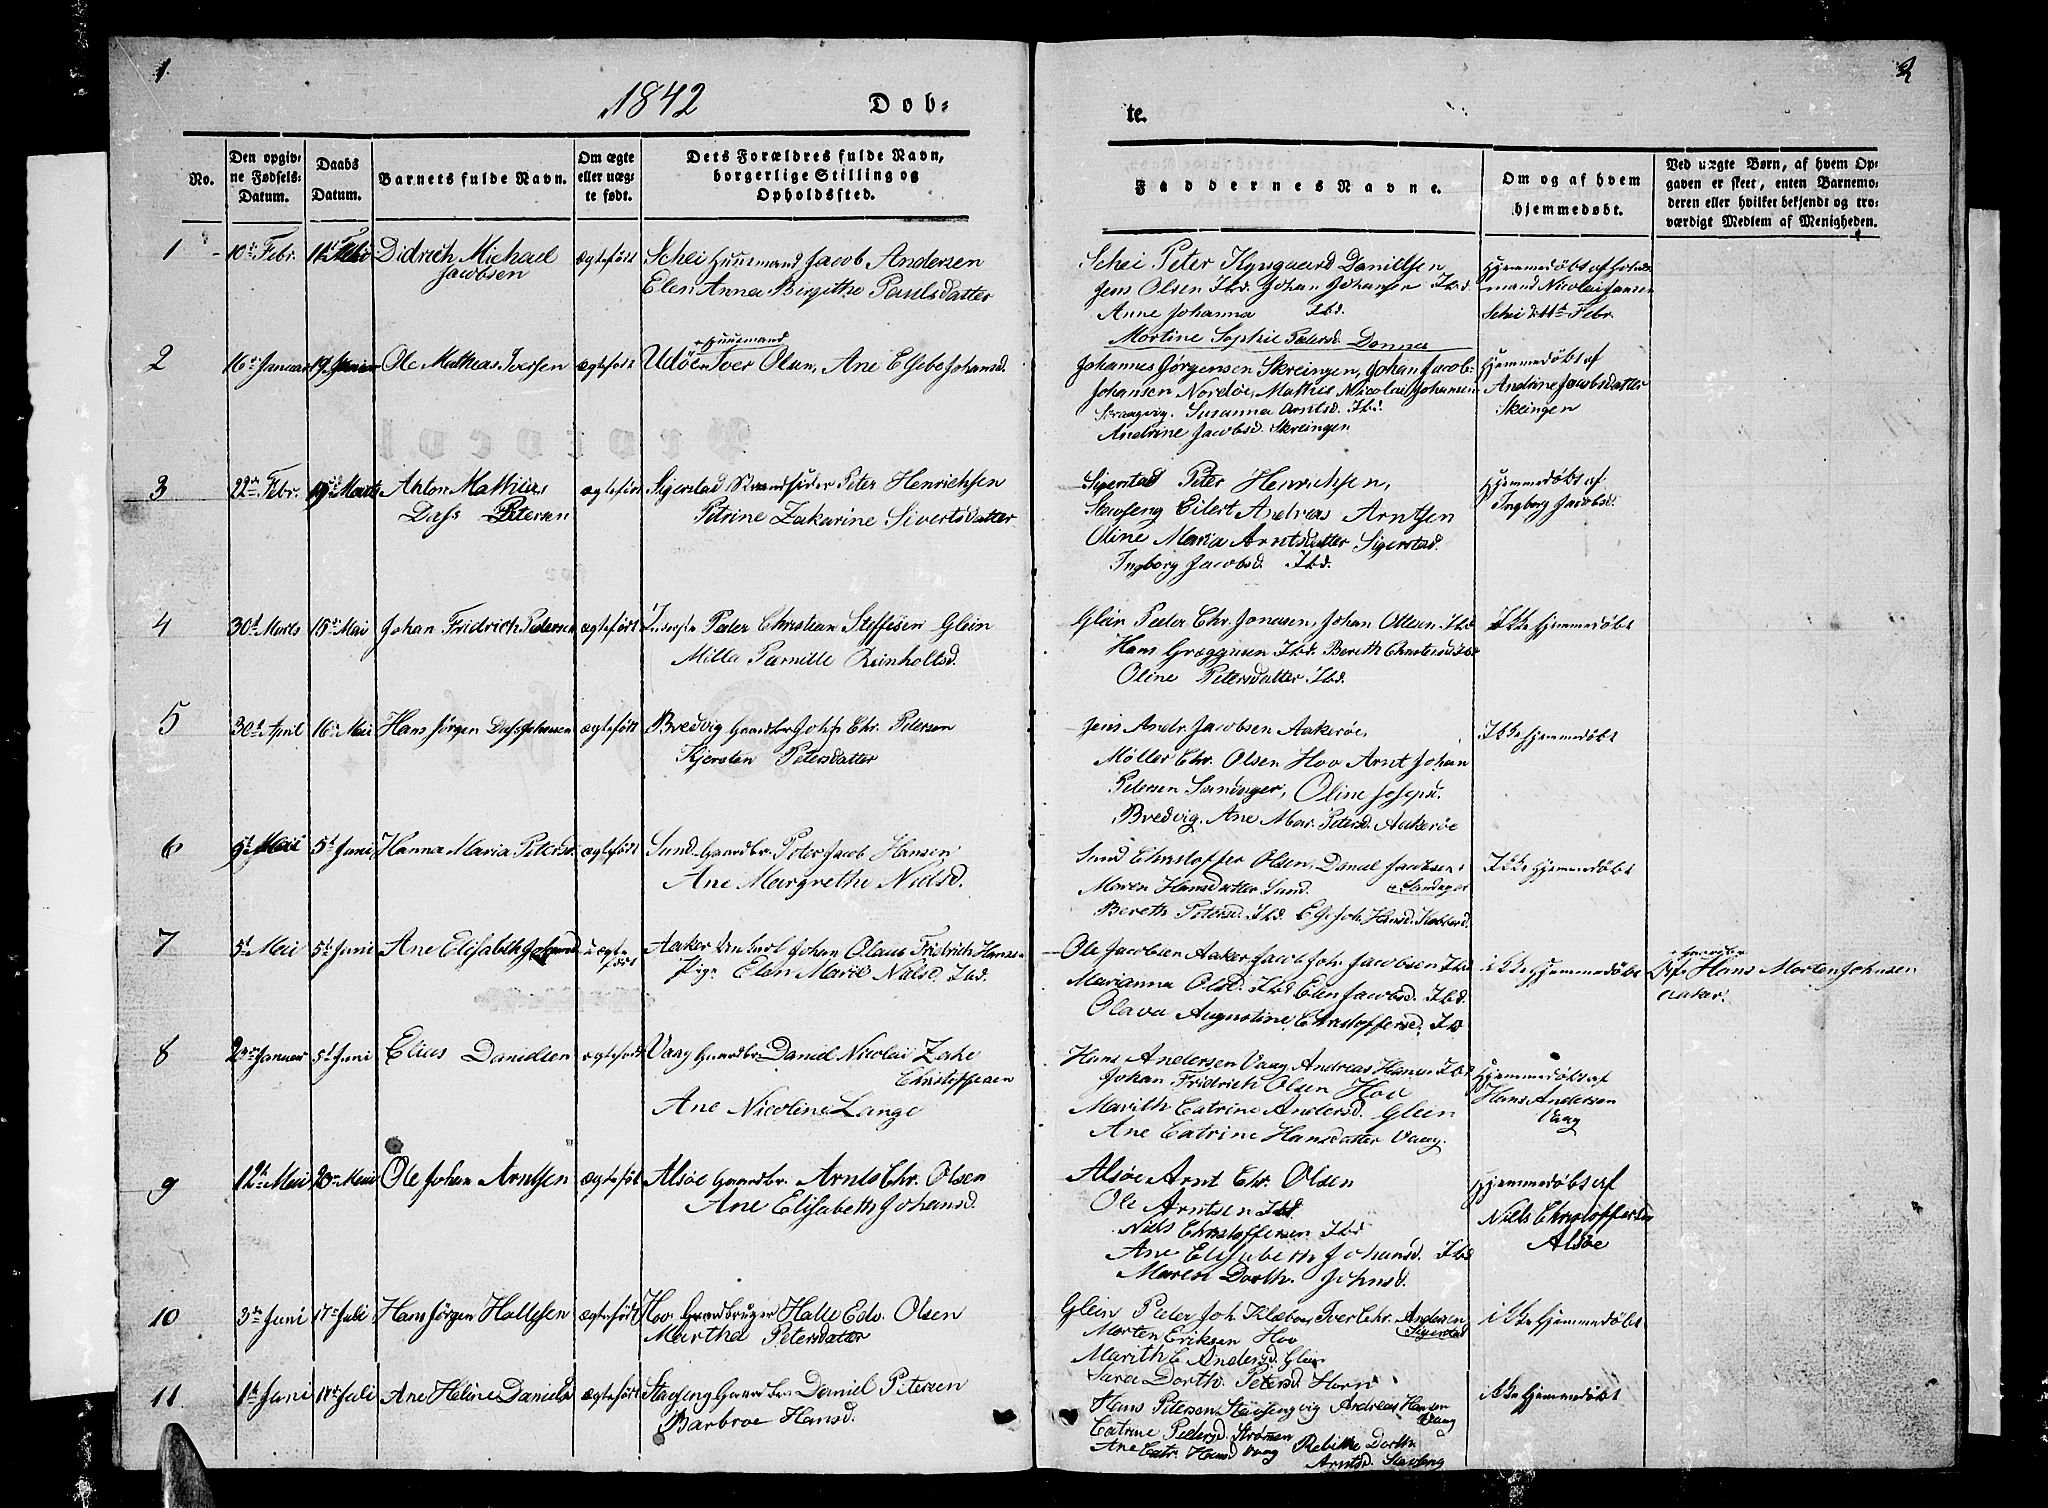 1.
2
1842
Døb-
te.
No.
Den opgivne Fødsels-Datum.
Daabs Datum.
Barnets fulde Navn.
Om ægte eller uægte født.
Dets Forældres fulde Navn, borgerlige Stilling og Opholdssted.
Faddernes Navne.
Om og af hvem hjemmedøbt.
Ved uægte Børn, af hvem Opgaven er skeet, enten Barnemoderen eller hvilket bekjendt og troværdigt Medlem af Menigheden.
1 10de Febr. Didrich Michael ægtefødt Schei Huusmand Jacob Andersen
Jacobsen
Elen Anna Birgithe Paulsdatter
Schei Peter Danielsen
Jens Olsen Ibd. Johan Johansen Ibd.
Anne Johanna Ibd.
Mortine Sophie Petersd. Dønnes
Hjemmedøbt af
mand Nicolai Jansen
Schei d. 11te Febr.
2 16de Januar Ole Mathias Iversen ægtefødt Udøen Iver Olsen, Ane Elsebe Johansd.
Huusmand
Johannes Jørgensen Skreingen, Johan Jacob
Johansen Nordøe, Mathis Nicolai Johansen
Susanna Arntsd. Ibd.
Andrine Jacobsd. Skreingen
Hjemmedøbt af
Andrine Jacobsdatter
Skeingen
3 22de Febr. Marts Anton Mathias ægtefødt Sigerstad Strandsider Peter Henrichsen
Dass Petersen
Petrine Zakarine Sivertsdatter
Sigerstad Peter Henrichsen,
Stavseng Eilert Andreas Arntsen
Oline Maria Arntsdatter Sigerstad.
Ingborg Jacobsd. Ibd.
Hjemmedøbt af
Ingborg Jacobsd.
4 30d Marts 15de Mai Johan Fridrich Petersen ægtefødt Inderste Peder Christian Steffesen Glein
Milla Pernille Reinholtsd.
Glein Peder Chr. Jonassen, Johan Ottesen Ibd
Hans Ibd. Bereth Christensd Ibd
Oline Petersdatter Ibd.
Ikke Hjemmedøbt
5 30d April 16de Mai Hans Jørgen Dass Johansen ægtefødt Bredvig Gaardbr. Johs Chr. Petersen
Kjersten Petersdatter
Jens Andr. Jacobsen Aakerøe,
Møller Chr. Olsen Hov Arnt Johan
Petersen Sandager, Oline Josepsd.
Bredvig. Ane Mar. Petersd. Aakerøe
Ikke Hjemmedøbt
6 5t Mai 5t Juni Hanna Maria Petersd. ægtefødt Sund Gaardbr. Peter Jacob Hansen
Ane Margrethe Nielsd.
Sund Christoffer Olsen, Daniel Jacobsen
Maren Hansdatter Sund. Sandager
Bereth Petersd. Ibd.
Ikke Hjemmedøbt
7 5t Mai 5t Juni Ane Elisabeth uægte Aaker Johan Olaus Fridrich Hansen
født Pige Elen Marie Nielsd. Ibd.
Ole Jacobsen Aaker Jacob Joh. Jacobsen Ibd
Marianna Olsd. Ibd Elen Jacobsd. Ibd.
Olava Augustine Christoffersd. Ibd
ikke Hjemmedøbt
Gaardbr.
Hans Morten Johnsen
Aaker.
8 Januar 5t Juni Elias Danielsen ægtefødt Vaag Gaardbr. Daniel Nicolai Zake
Christoffersen
Ane Nicoline Lange
Hans Andersen Vaag Andreas Hansen Ibd
Johan Fridrich Olsen Hov
Marith Catrine Andersd. Glein
Ane Catrine Hansdatter Vaag.
Hjemmedøbt af
Hans Andersen
Vaag
9 12te Mai 20de Mai Ole Johan Arntsen ægtefødt Alsøe Gaardbr. Arnt Chr. Olsen
Ane Elisabeth Johansd.
Alsøe Arnt Chr. Olsen
Ole Arntsen Ibd
Niels Christoffersen Ibd
Ane Elisabeth Johansd. Ibd
Maren Dorth. Johnsd.
Hjemmedøbt af
Niels Christoffersen
Alsøe
10 3de Juni 17de Juli Hans Jørgen Hallesen ægtefødt Hov Gaardbruger Halle Edv. Olsen
Martha Petersdatter
Glein Peder Joh. Klæboe, Iver Chr. Andersen
Sigerstad
Morten Eriksen Hov
Marith C. Andersd. Glein
Sara Dorth. Petersd. Horn
ikke Hjemmedøbt
11 1te Juni 17de Juli Ane Heline Danielsd ægtefødt Stavseng Gaardbr. Daniel Petersen
Barbroe Hansd.
Hans Petersen Stavsengvig Andreas Hansen
Vaag
Catrine Pedersd. Strømen
Ane Catr. Hansd Vaag Rebekke Dorth.
Arntsd. Stavseng
ikke Hjemmedøbt